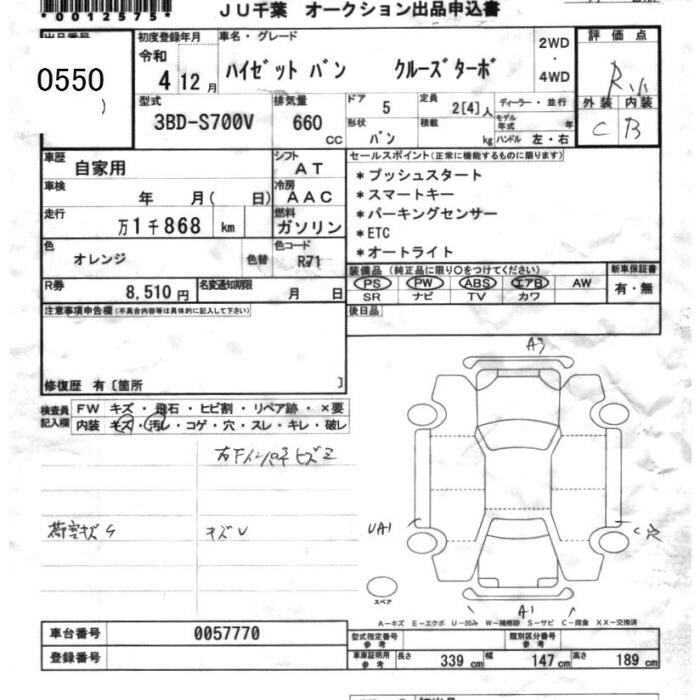 *0012575*
JU千葉 オークション出品申込書
出品番号
0550
初度登録年月
令和
4 12月
車名・グレード
ハイゼット バン クルーズターボ
2WD
・
4WD
評価点
R
外装 内装
C B
型式
3BD-S700V
排気量
660 cc
ドア
5
形状
バン
定員
2[4]人
積載
kg
ディーラー・並行
モデル年式 年
ハンドル 左・右
車歴
自家用
シフト
AT
車検
年 月( 日)
冷房
AAC
走行
万1千868 km
燃料
ガソリン
色
オレンジ
色替
色コード
R71
R券
8,510円
名変通知期限
月 日
セールスポイント(正常に機能するものに限ります)
*プッシュスタート
*スマートキー
*パーキングセンサー
*ETC
*オートライト
装備品 (純正品に限り○をつけてください)
PS PW ABS エアB AW
SR ナビ TV カワ
新車保証書
有・無
後日品
注意事項申告欄(不具合内容等は具体的に記入して下さい)
修復歴 有〔箇所 〕
検査員
記入欄
FW キズ・飛石・ヒビ割・リペア跡・×要
内装 キズ・汚レ・コゲ・穴・スレ・キレ・破レ
荷室キズ
キズ
A3
UA1
C穴
A1
スペア
A-キズ E-エクボ U-凹み W-補修跡 S-サビ C-腐食 XX-交換済
車台番号
0057770
登録番号
型式指定番号
参考
類別区分番号
参考
車庫証明用
参考
長さ 339cm 幅 147cm 高さ 189cm